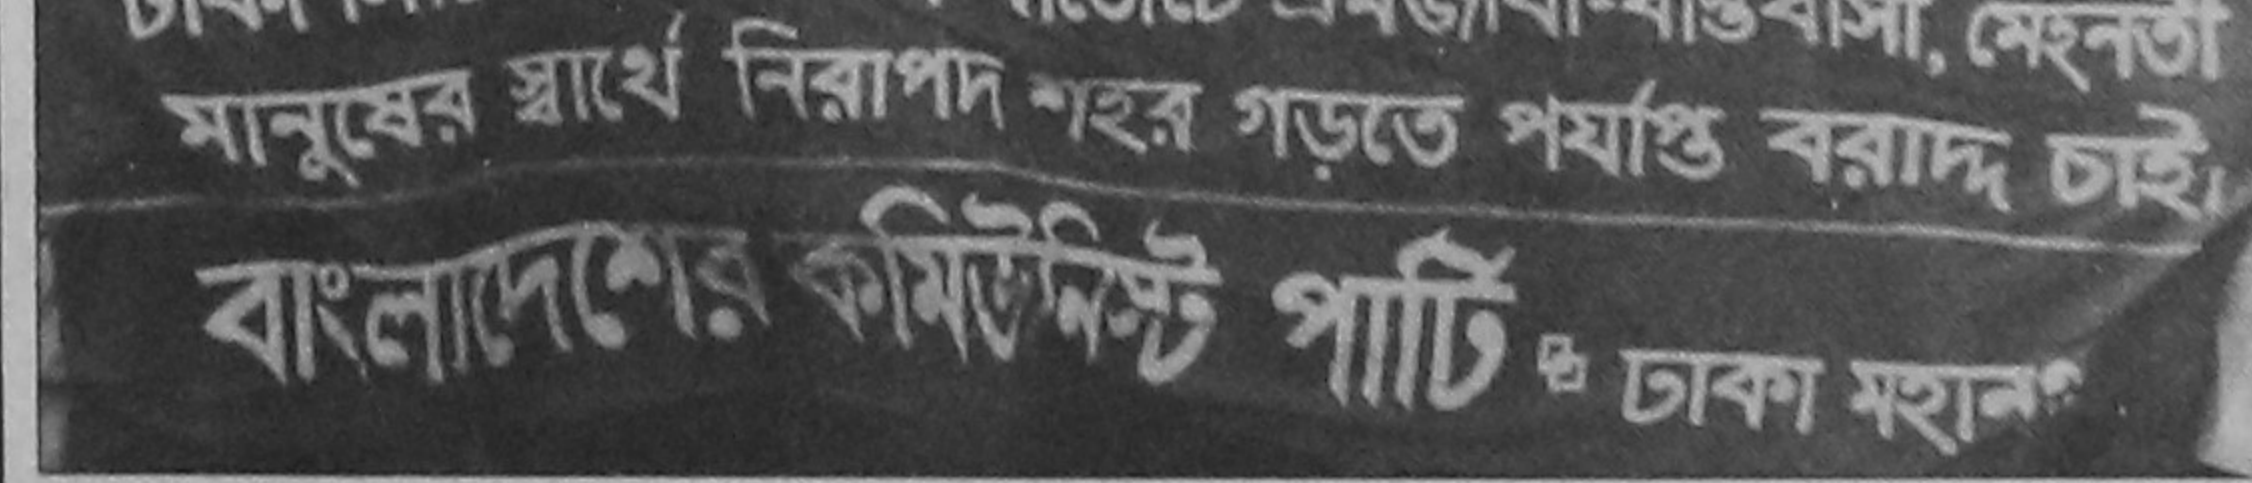 ঢাকা শ্রমজীবী-বস্তিবাসী, মেহনতী
মানুষের স্বার্থে নিরাপদ শহর গড়তে পর্যাপ্ত বরাদ্দ চাই।
বাংলাদেশের কমিউনিস্ট পার্টি ঢাকা